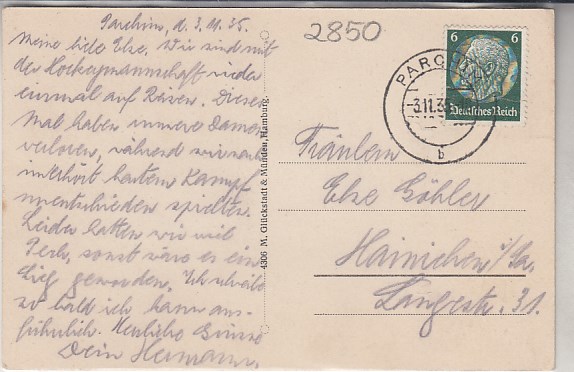 Parchim, d. 3.11.35.
Meine liebe Else. Wir sind mit
der Hockeymannschaft wieder
einmal auf Reisen. Dieses
Mal haben unsere Damen
verloren, während wir nach
unerhört hartem Kampf
unentschieden spielten.
Leider hatten wir viel
Pech, sonst wäre es ein
Sieg geworden. Ich schreibe
so bald ich kann aus-
führlich. Herzliche Grüsse
Dein Hermann.
4306 M. Glückstadt & Münden, Hamburg.
2850
PARCHIM
-3.11.35
b
6 6
Deutsches Reich
Fräulein
Else Göhler
Hainichen i/Sa.
Langestr. 31.